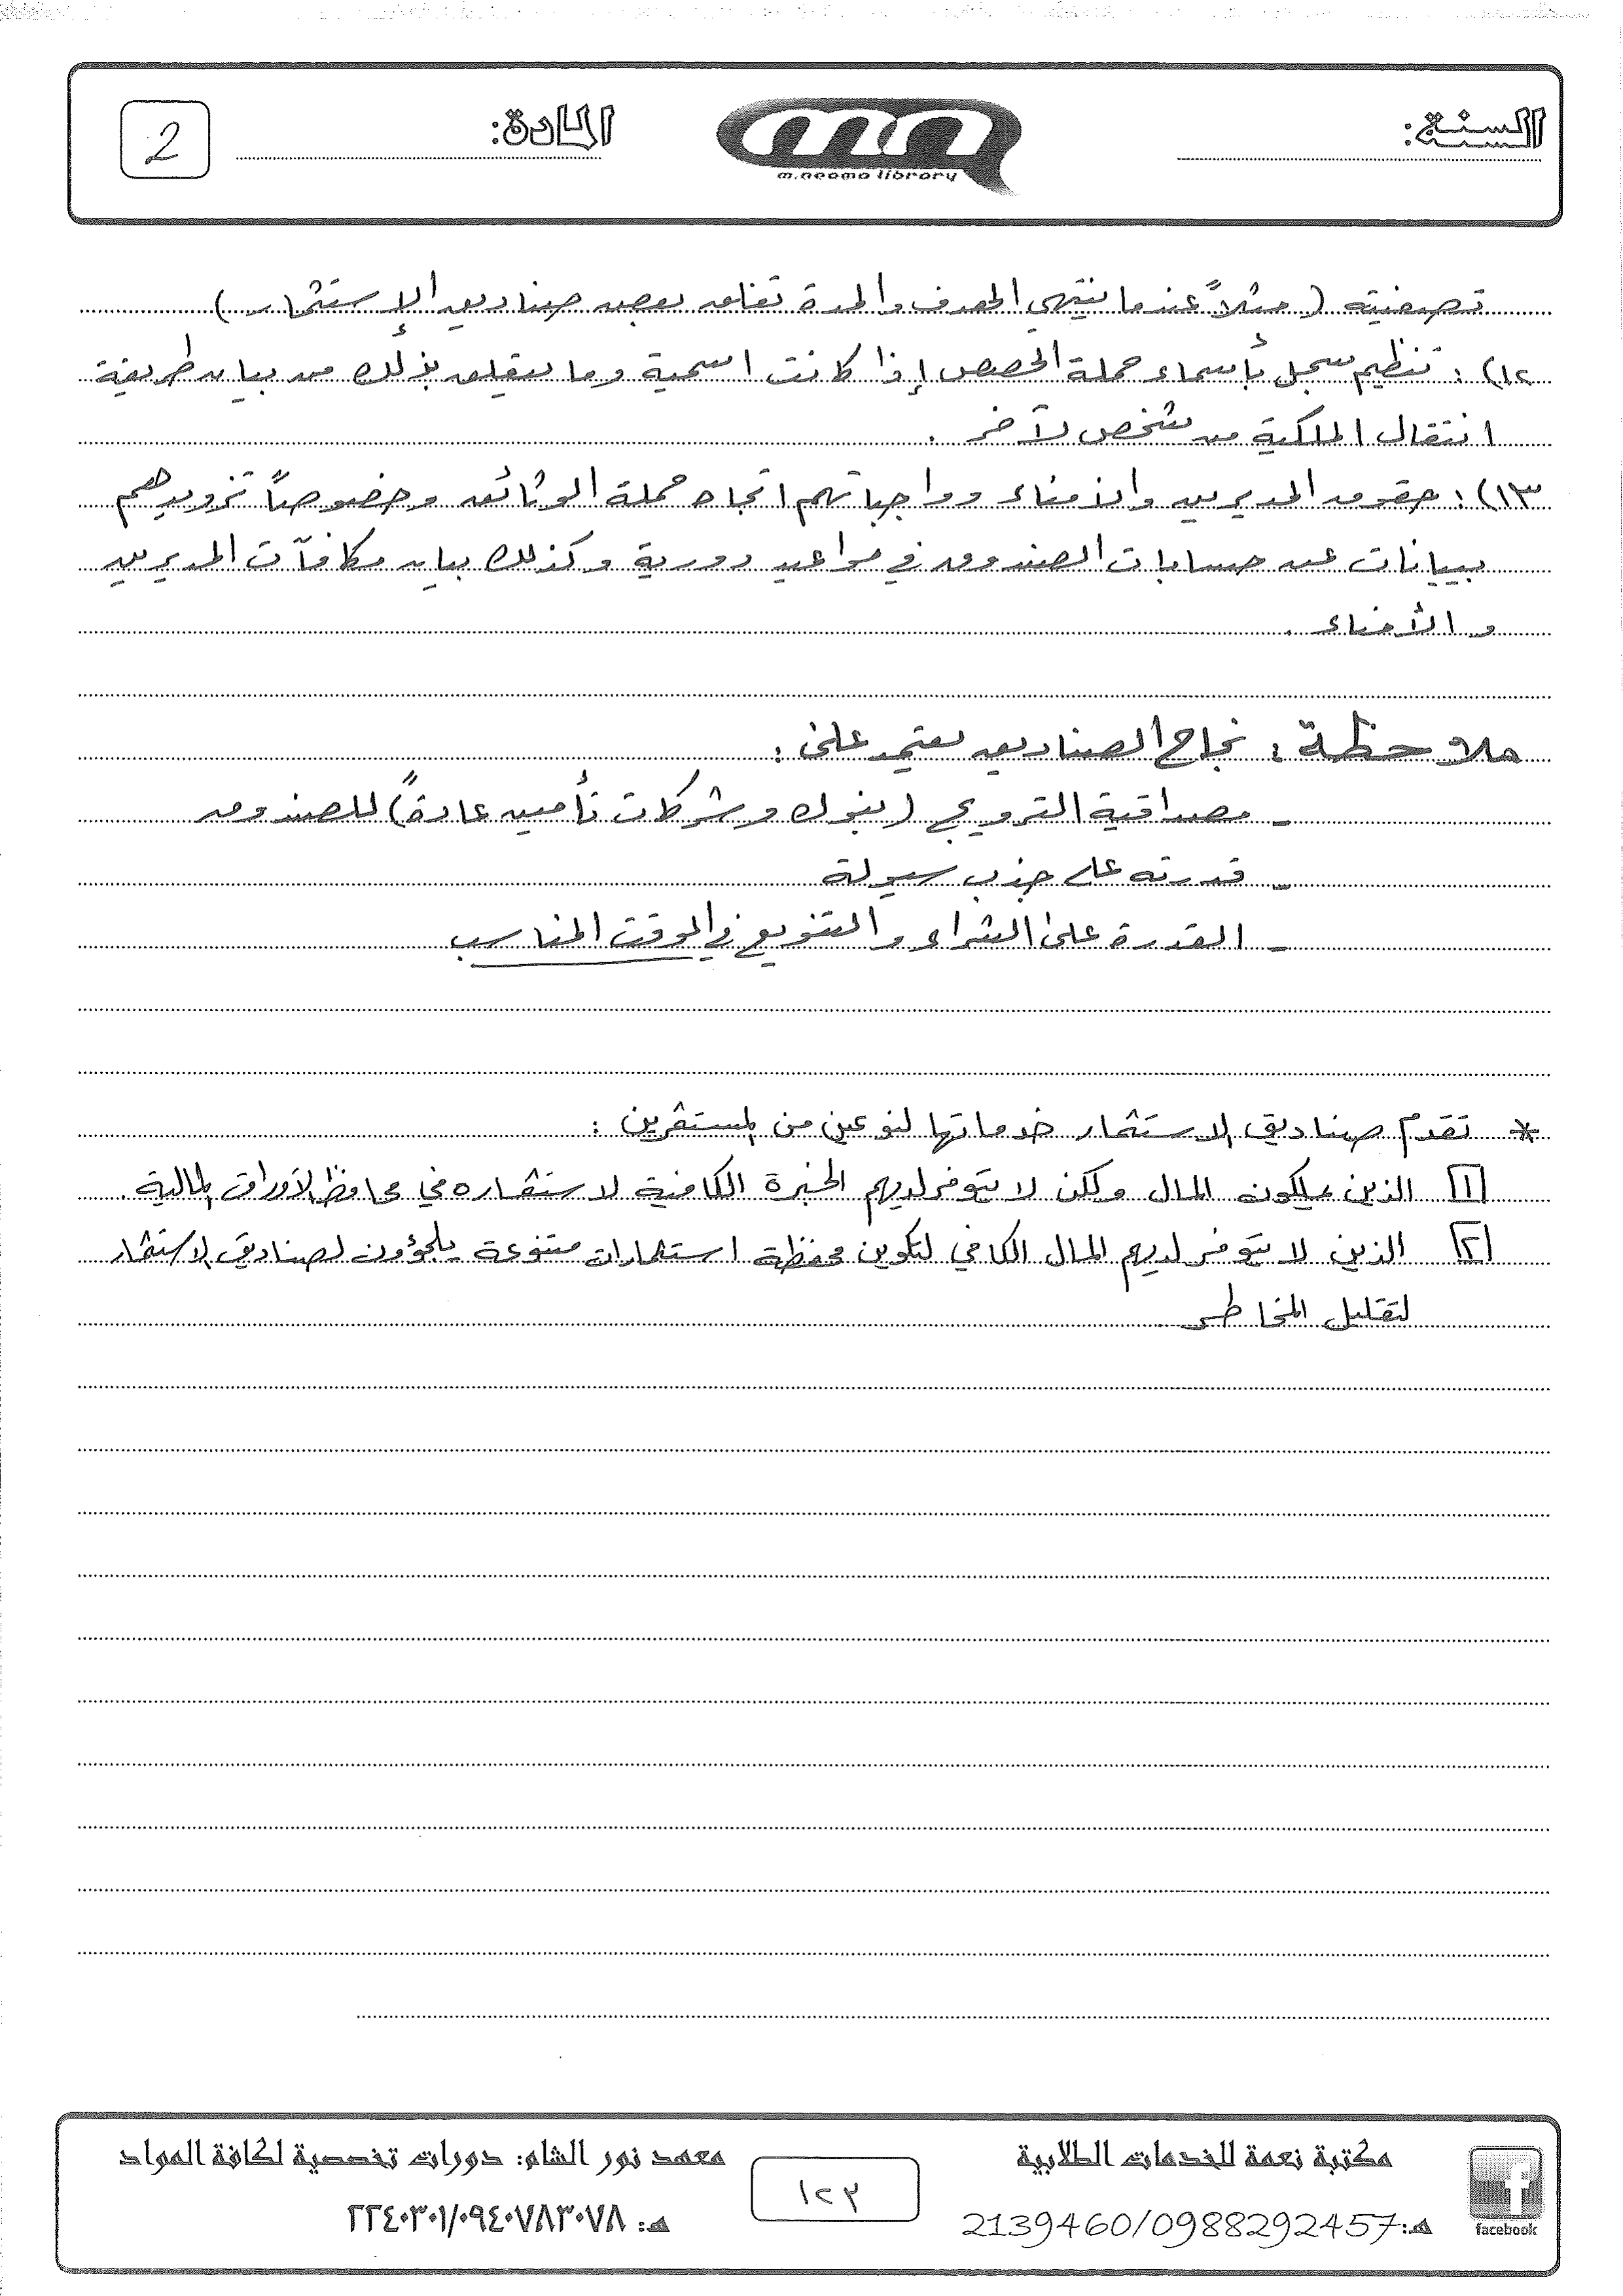 السنة:
m.neama library
المادة:
2
تصفيته ( مثلاً عندما ينتهي الهدف والمدة تغلق بعض صناديق الإستثمار )
١٢) : تنظيم سجل بأسماء حملة الحصص إذا كانت اسمية وما يتعلق بذلك من بيان طريقة
انتقال الملكية من شخص لآخر .
١٣) : حقوق المديرين والأمناء وواجباتهم اتجاه حملة الوثائق وخصوصاً تزويدهم
ببيانات عن حسابات الصندوق في مواعيد دورية وكذلك بيان مكافآت المديرين
و الأمناء .
ملاحظة : نجاح الصناديق يعتمد على :
- مصداقية الترويج ( بنوك وشركات تأمين عادةً ) للصندوق
- قدرته على جذب سيولة
- القدرة على الشراء والتنويع في الوقت المناسب
* تقدم صناديق الاستثمار خدماتها لنوعين من المستثمرين :
١ الذين يملكون المال ولكن لا يتوفر لديهم الخبرة الكافية لاستثماره في محافظ الأوراق المالية .
٢ الذين لا يتوفر لديهم المال الكافي لتكوين محفظة استثمارات متنوعة يلجؤون لصناديق الاستثمار
لتقليل المخاطر
مكتبة نعمة للخدمات الطلابية
هـ: 2139460/0988292457
facebook
١٢٢
معهد نور الشام: دورات تخصصية لكافة المواد
هـ: ٢٢٤٠٣٠١/٠٩٤٠٧٨٣٠٧٨